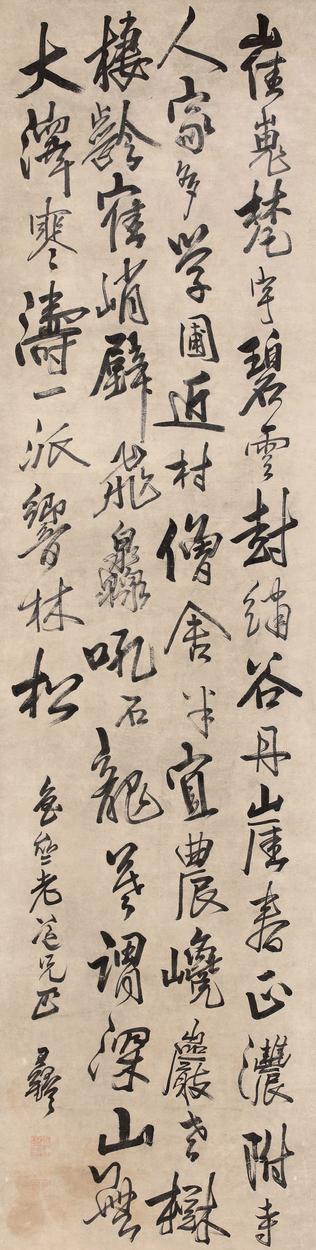 崔嵬梵宇碧雲封綉谷丹崖春正濃附寺
人家多學圃近村僧舍半宜農巉巖老樹
棲齡隺峭壁飛灥吼石龍莫謂深山無
大澤寒濤一派響林松
老道兄正